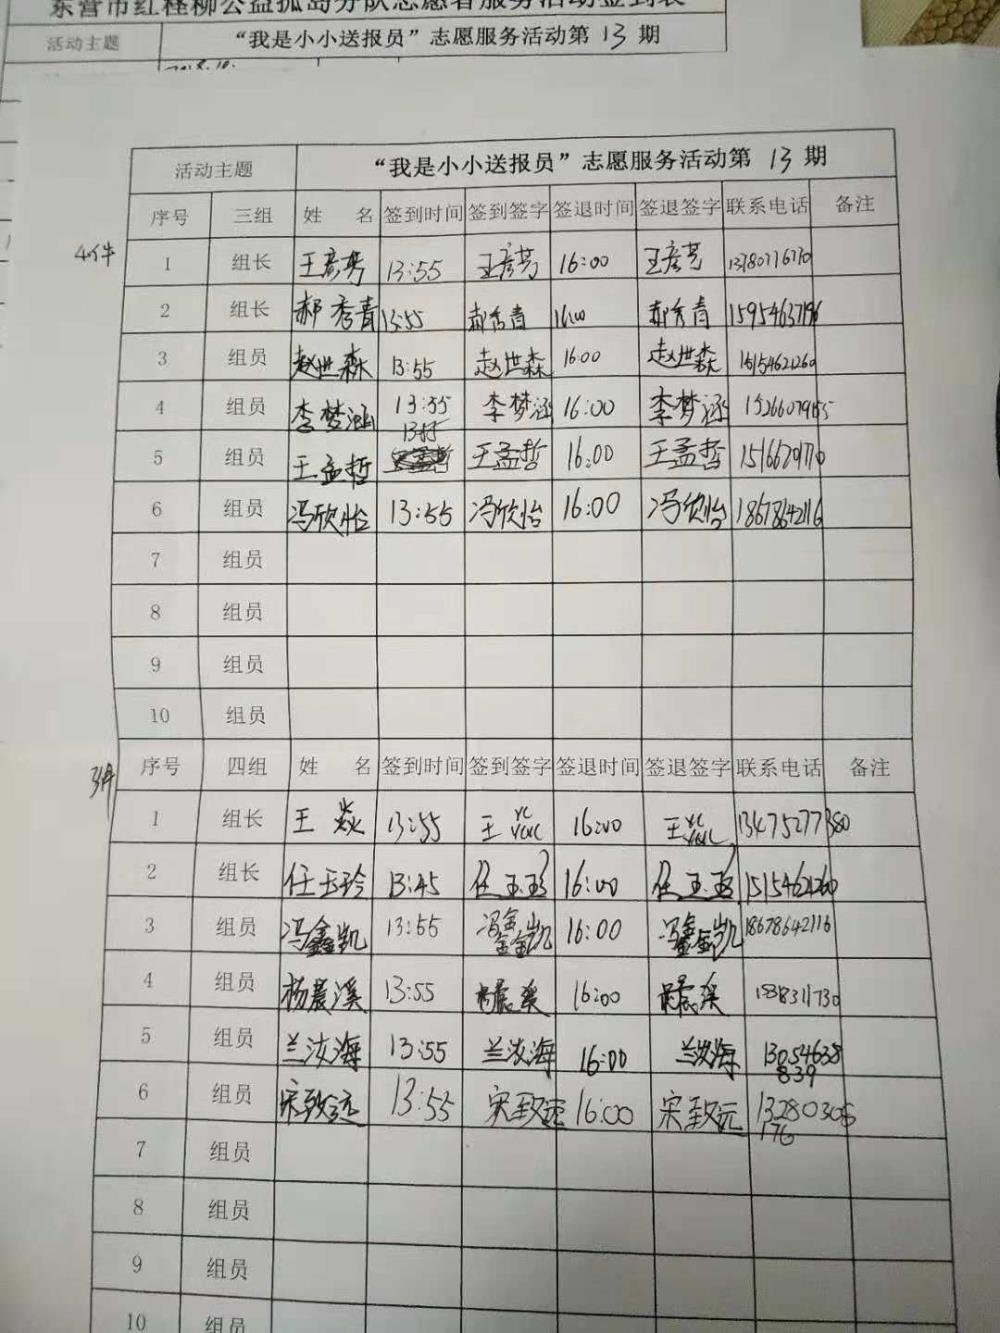 东营市红柽柳公益孤岛分队志愿者服务活动签到表
活动主题 “我是小小送报员”志愿服务活动第 13 期
活动主题 “我是小小送报员”志愿服务活动第 13 期
序号 三组 姓 名 签到时间 签到签字 签退时间 签退签字 联系电话 备注
4件
1 组长 王彦芳 13:55 王彦芳 16:00 王彦芳
2 组长 郝秀青 13:55 郝秀青 16:00 郝秀青
3 组员 赵世森 13:55 赵世森 16:00 赵世森 15154621260
4 组员 李梦涵 13:55 李梦涵 16:00 李梦涵
5 组员 王孟哲 13:55 王孟哲 16:00 王孟哲
6 组员 冯欣怡 13:55 冯欣怡 16:00 冯欣怡 18678642116
7 组员
8 组员
9 组员
10 组员
3件
序号 四组 姓 名 签到时间 签到签字 签退时间 签退签字 联系电话 备注
1 组长 王焱 13:55 王焱 16:00 王焱 13475277380
2 组长 任玉玲 13:45 任玉玲 16:00 任玉玲 15154621260
3 组员 冯鑫凯 13:55 冯鑫凯 16:00 冯鑫凯 18678642116
4 组员 杨晨溪 13:55 16:00
5 组员 兰汝海 13:55 兰汝海 16:00 兰汝海 13054638
839
6 组员 宋致远 13:55 宋致远 16:00 宋致远 13280306
176
7 组员
8 组员
9 组员
10 组员